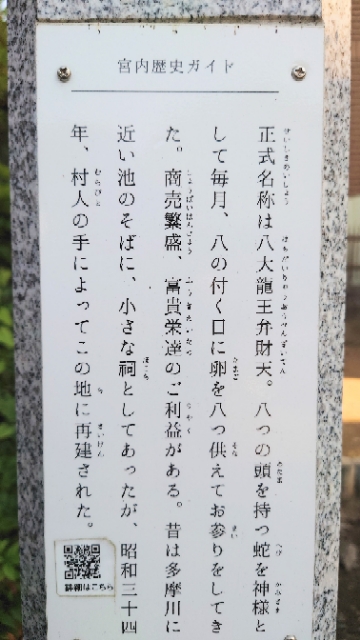 宮内歴史ガイド
正式名称は八大龍王弁財天。八つの頭を持つ蛇を神様と
して毎月、八の付く日に卵を八つ供えてお参りをしてき
た。商売繁盛、富貴栄達のご利益がある。昔は多摩川に
近い池のそばに、小さな祠としてあったが、昭和三十四
年、村人の手によってこの地に再建された。
詳細はこちら